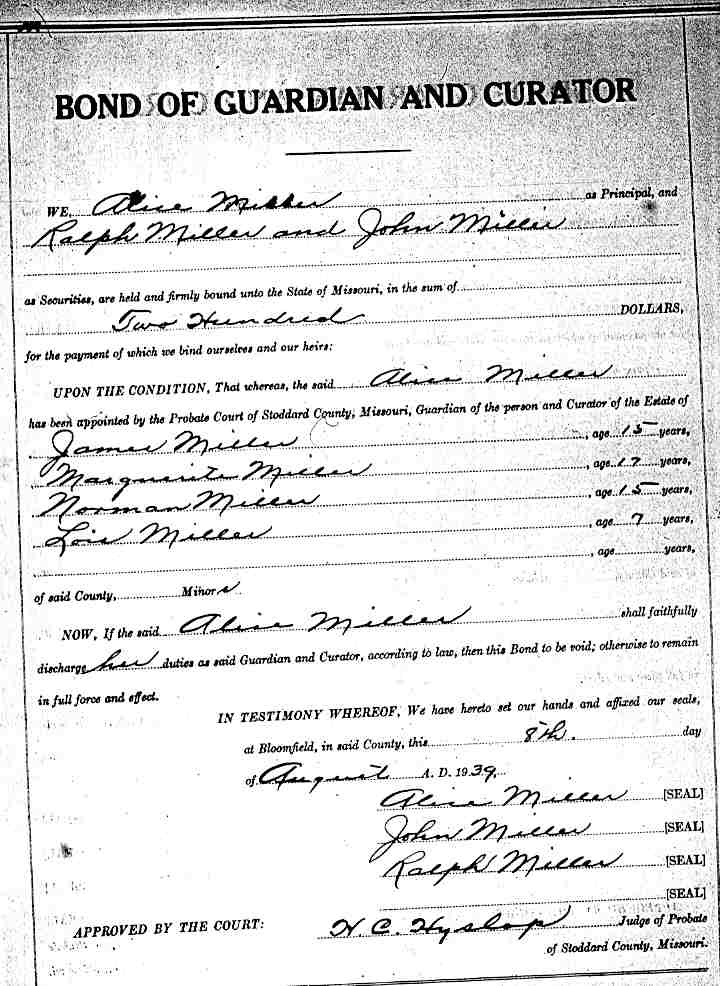 BOND OF GUARDIAN AND CURATOR
WE, Alice Miller as Principal, and
Ralph Miller and John Miller
as Securities, are held and firmly bound unto the State of Missouri, in the sum of
Two Hundred DOLLARS,
for the payment of which we bind ourselves and our heirs:
UPON THE CONDITION, That whereas, the said Alice Miller
has been appointed by the Probate Court of Stoddard County, Missouri, Guardian of the person and Curator of the Estate of
James Miller, age 15 years,
Marguerite Miller, age 17 years,
Norman Miller, age 15 years,
Lois Miller, age 7 years,
, age years,
of said County, Minors
NOW, If the said Alice Miller shall faithfully
discharge her duties as said Guardian and Curator, according to law, then this Bond to be void; otherwise to remain
in full force and effect.
IN TESTIMONY WHEREOF, We have hereto set our hands and affixed our seals,
at Bloomfield, in said County, this 8th. day
of August A. D. 1939.
Alice Miller [SEAL]
John Miller [SEAL]
Ralph Miller [SEAL]
[SEAL]
APPROVED BY THE COURT: H. C. Hyslop Judge of Probate
of Stoddard County, Missouri.